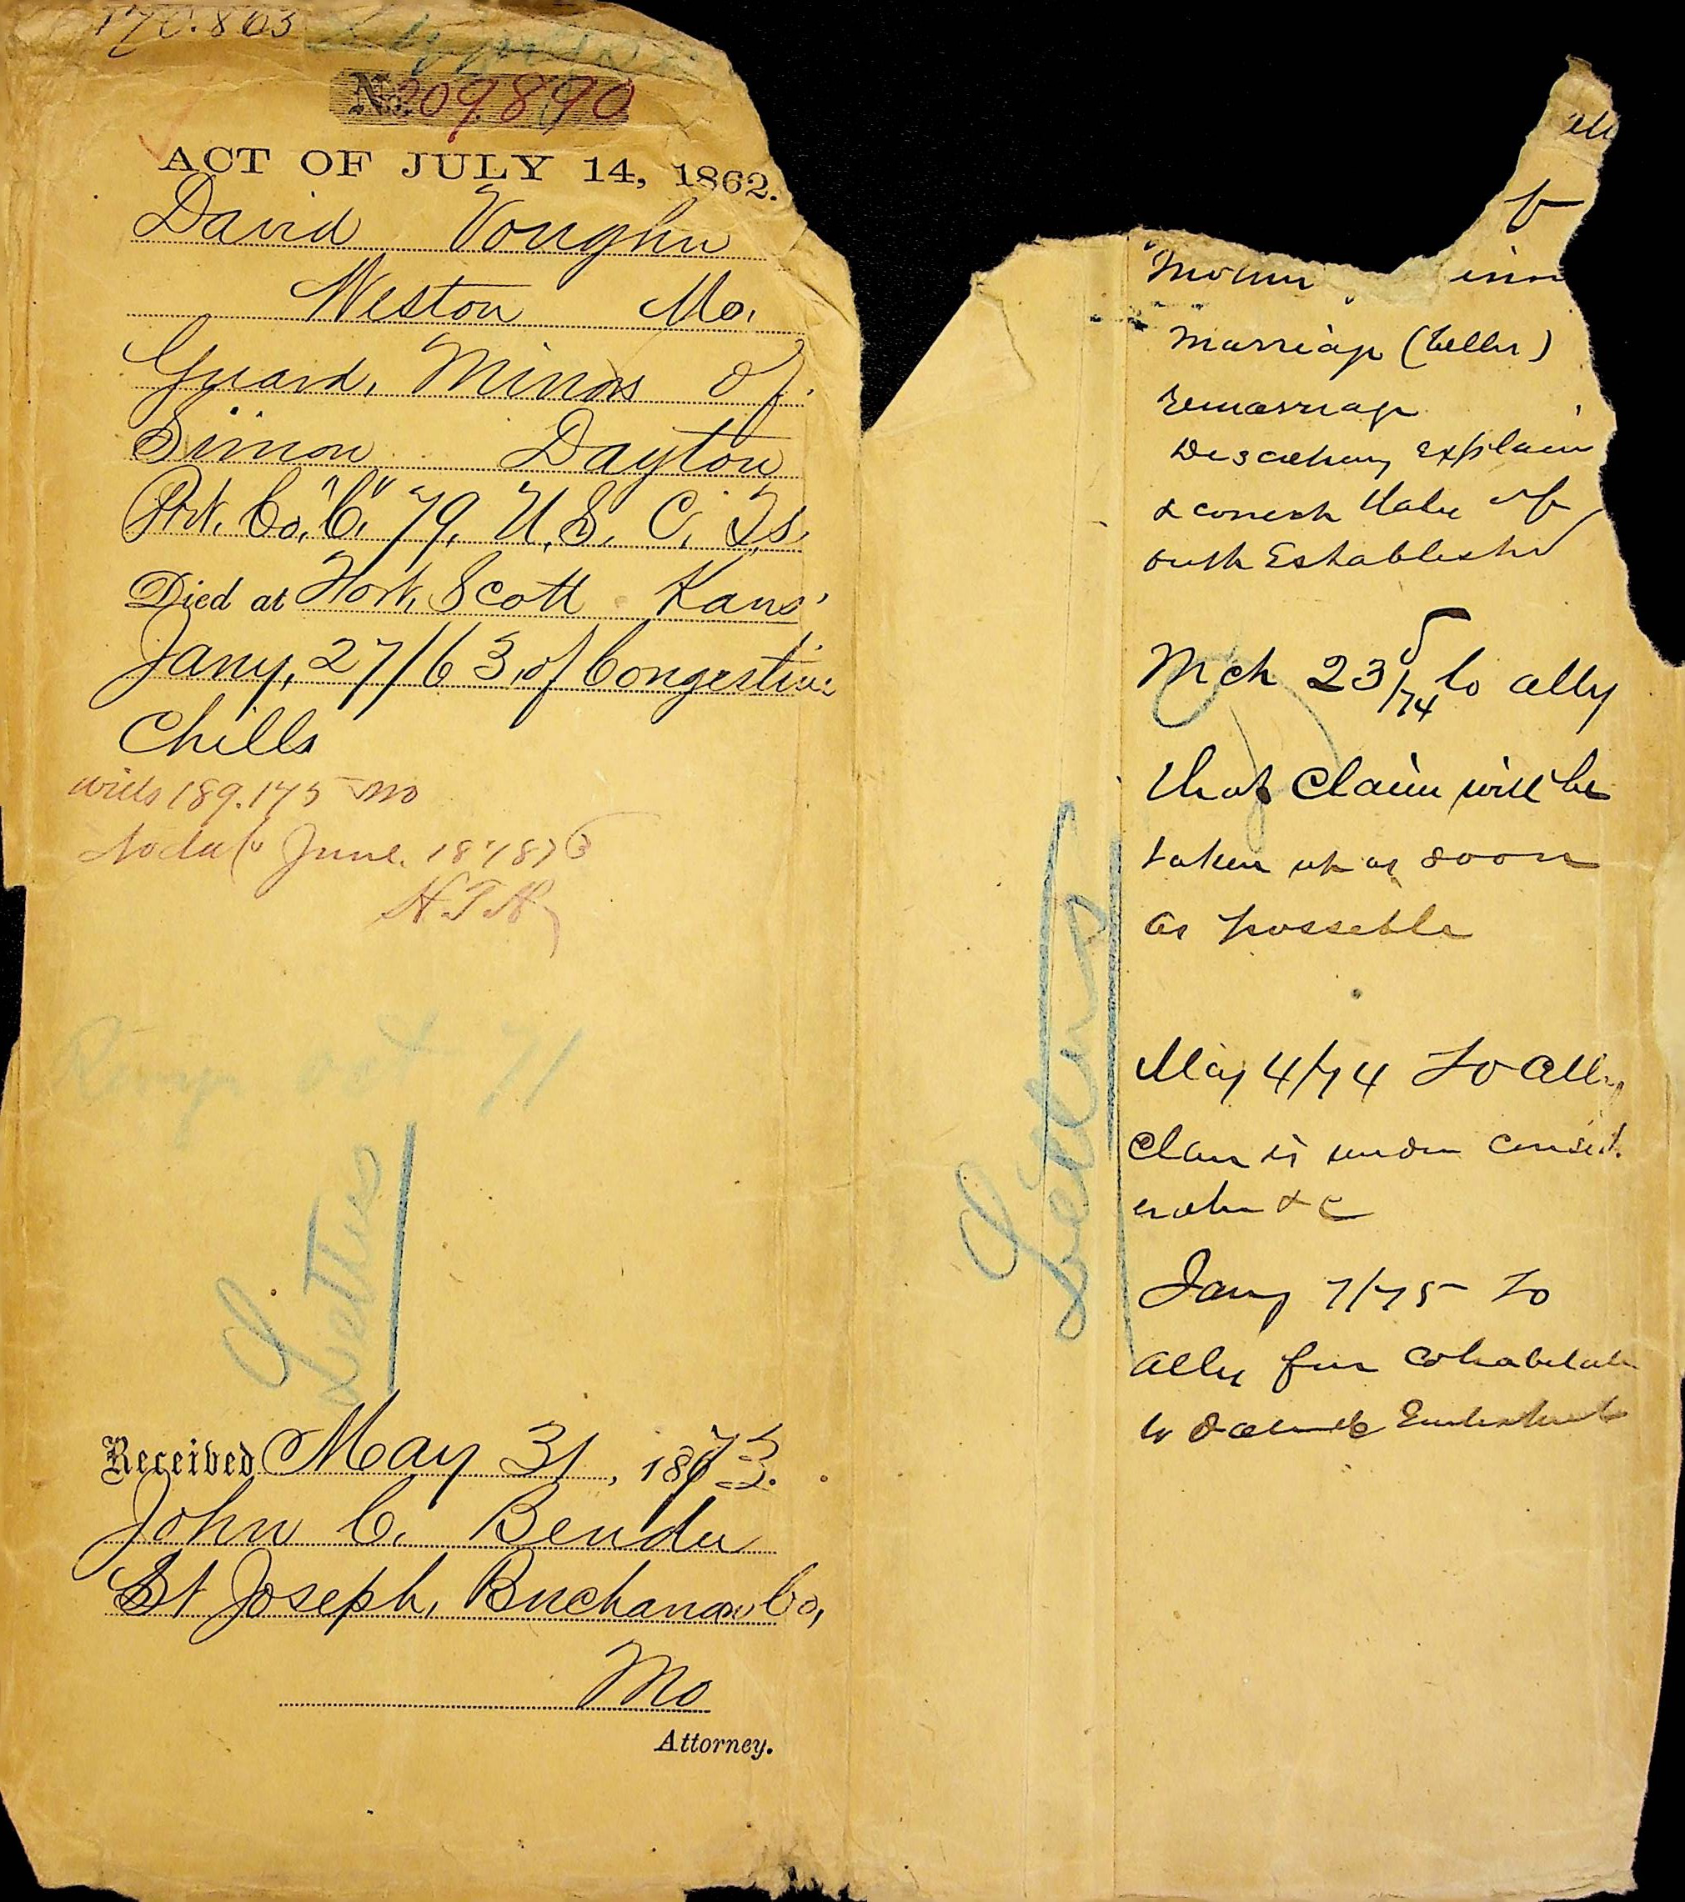 170.863
No. 209.890
ACT OF JULY 14, 1862.
David Voughn
Weston Mo.
Guard. Minors of
Simon Dayton
Prt. Co. "C" 79, U.S. C. Ts.
Died at Fort, Scott Kans'
Jany, 27/63, of Congestive
Chills
wids 189.175
June. 18, 1873
Letters
Received May 31, 1873.
John C. Bender
St Joseph, Buchanan Co,
Mo
Attorney.
Letters
marriage (letter)
remarriage
explain
& correct date of
Mch 23/74 to atty
that claim will be
taken up as soon
as possible
May 4/74 To atty
claim is under consid
eratn &c
Jany 7/75 To
atty for cohabitatn